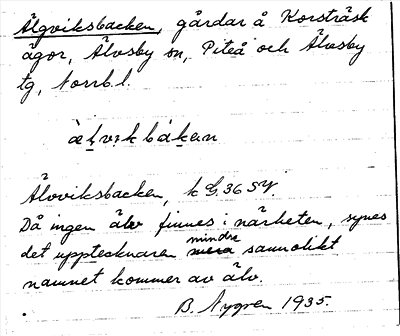 Älgviksbacken, gårdar å Korsträsk
ägor, Älvsby sn, Piteå och Älvsby
tg, Norrb. l.
Älvviksbacken, k G. 36 SY.
Då ingen älv finnes i närheten, synes
det upptecknaren mindre sannolikt
namnet kommer av älv.
B. Nygren 1935.